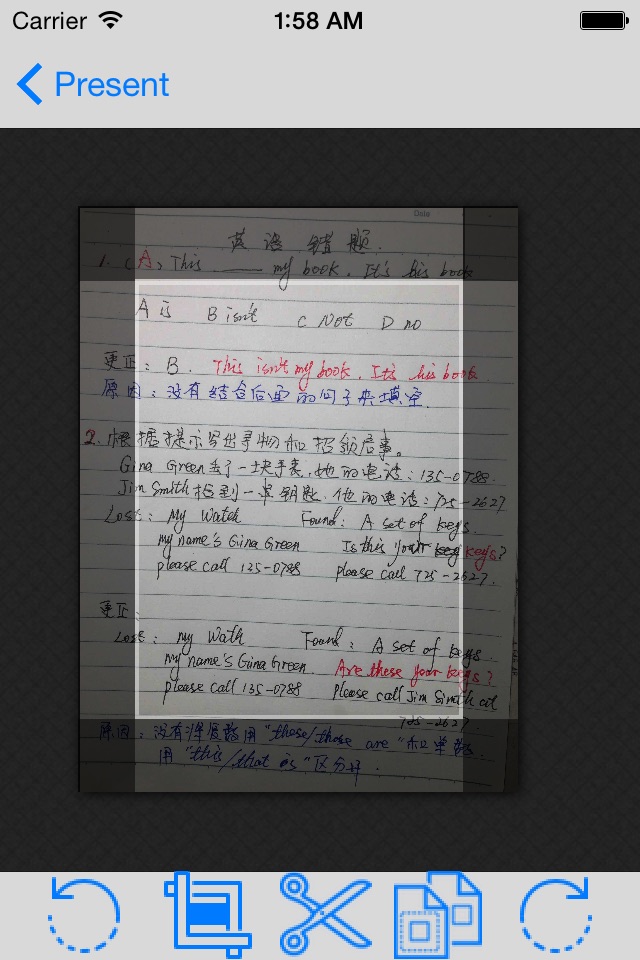 Carrier
1:58 AM
Present
Date
英语错题.
1. (A) This ____ my book. It's his book
A is B isn't C Not D no
更正: B. This isn't my book. It's his book
原因: 没有结合后面的句子来填空.
2. 根据提示写出寻物和招领启事。
Gina Green丢了一块手表, 她的电话: 135-0788.
Jim Smith捡到一串钥匙. 他的电话: 725-2627
Lost: My Watch Found: A set of keys.
my name's Gina Green Is this your keys?
please call 125-0788 please call 725-2627.
更正:
Lost: my Wath Found: A set of keys.
my name's Gina Green Are these your keys?
please call 135-0788 please call Jim Smith at
725-2627.
原因: 没有将复数用"these/those are"和单数
用"this/that is"区分开.